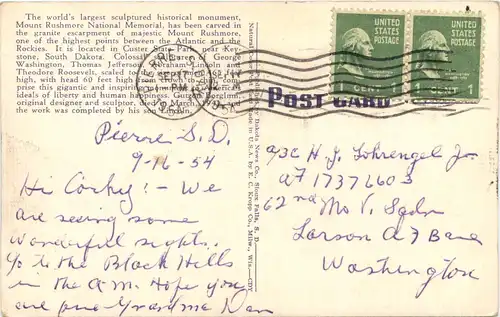 The world's largest sculptured historical monument,
Mount Rushmore National Memorial, has been carved in
the granite escarpment of majestic Mount Rushmore,
one of the highest points between the Atlantic and the
Rockies. It is located in Custer State Park near Key-
stone, South Dakota. Colossal of George
Washington, Thomas Jefferson, Abraham Lincoln and
Theodore Roosevelt, scaled to
high, with head 60 feet high crown to chin, com-
prise this gigantic and inspiring American
ideals of liberty and human happiness. Gutzon Borglum,
original designer and sculptor, March, 1941
the work was completed by his son Lincoln.
Pierre S.D.
9-16-54
Hi Corky! - We
are seeing some
wonderful sights.
Go to the Black Hills
in the A.M. Hope you
are fine Grandma Dan
UNITED STATES
POSTAGE
UNITED STATES
POSTAGE
1 CENT 1
PIERRE
SEP 17
PM
POST CARD
A/3C H. J. Lohrengel Jr.
AF 17376603
62nd Mo V. Sqdn
Larson A F Base
Washington